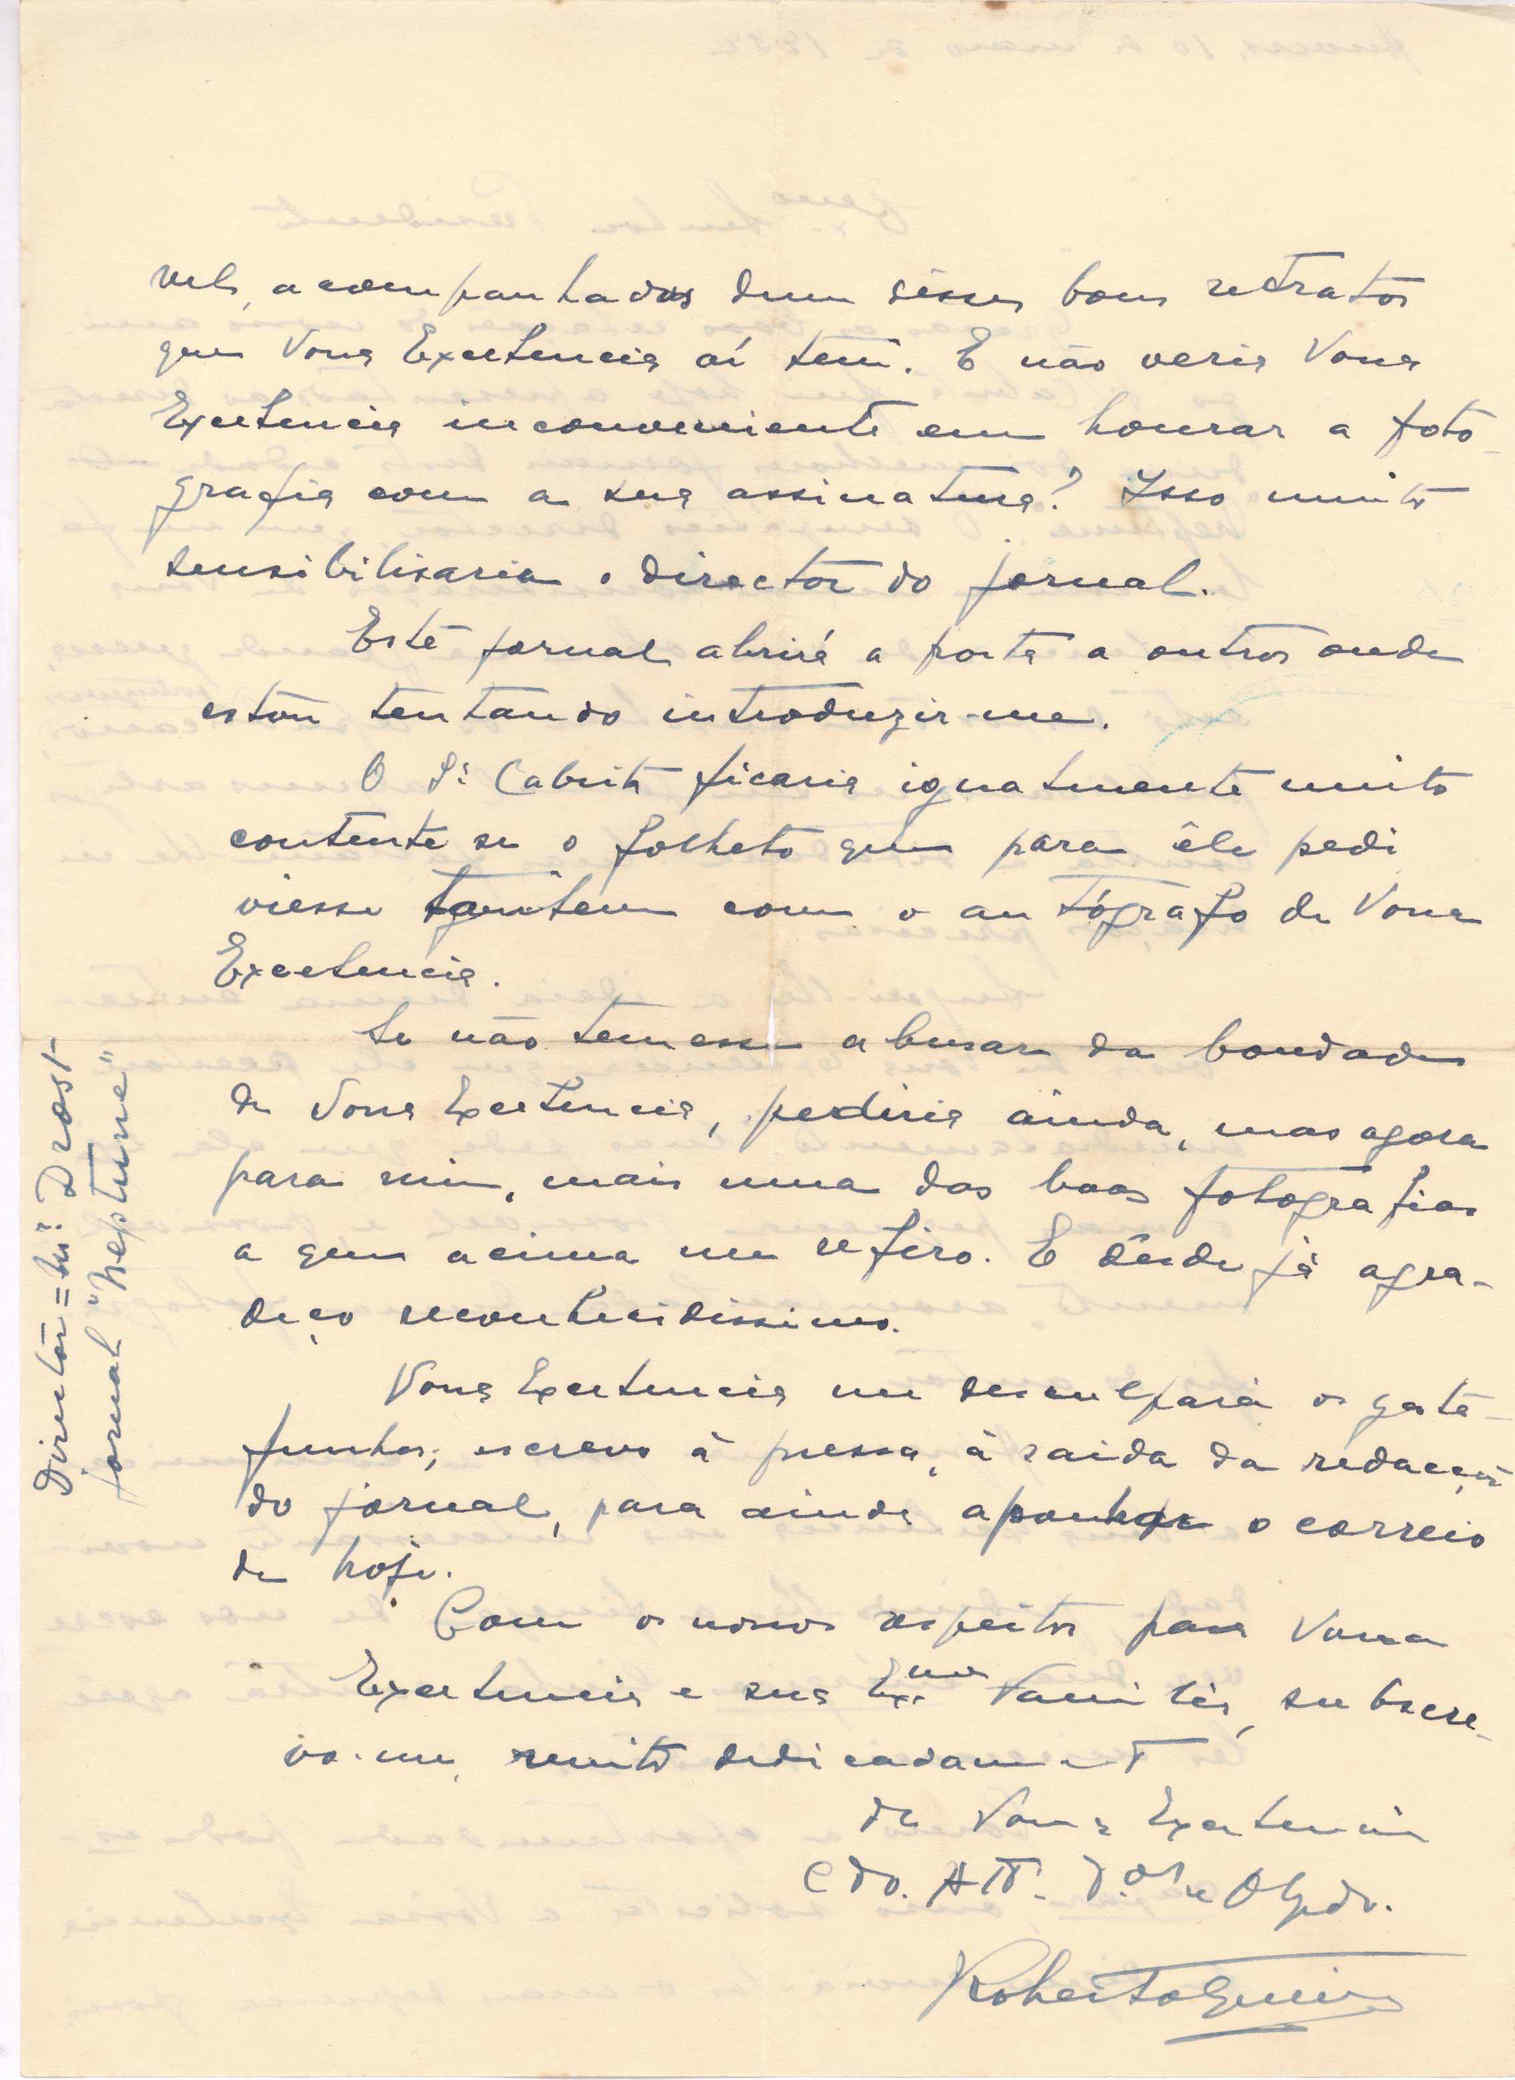 vel, acompanhados dum dêsses bons retratos
que Vossa Excelencia aí tem. E não veria Vossa
Excelencia inconveniente em honrar a foto-
grafia com a sua assinatura? Isso muito
sensibilisaria o director do jornal.
Este jornal abrirá a porta a outros onde
estou tentando introduzir-me.
O Sr. Cabrita ficaria igualmente muito
contente se o folheto que para êle pedi
viesse tambem com o autógrafo de Vossa
Excelencia.
Se não temesse abusar da bondade
de Vossa Excelencia, pediria ainda, mas agora
para mim, mais uma das boas fotografias
a que acima me refiro. E desde já agra-
deço reconhecidissimo.
Vossa Excelencia me desculpará os gata-
funhos; escrevo à pressa, à saida da redacção
do jornal, para ainda apanhar o correio
de hoje.
Com os nossos respeitos para Vossa
Excelencia e sua Exma Familia, subscre-
vo-me, muito dedicadamente
de Vossa Excelencia
Cdo. Att. V.or e Obgdo.
Roberto
Director = Mr. Drost-
jornal "Neptune"